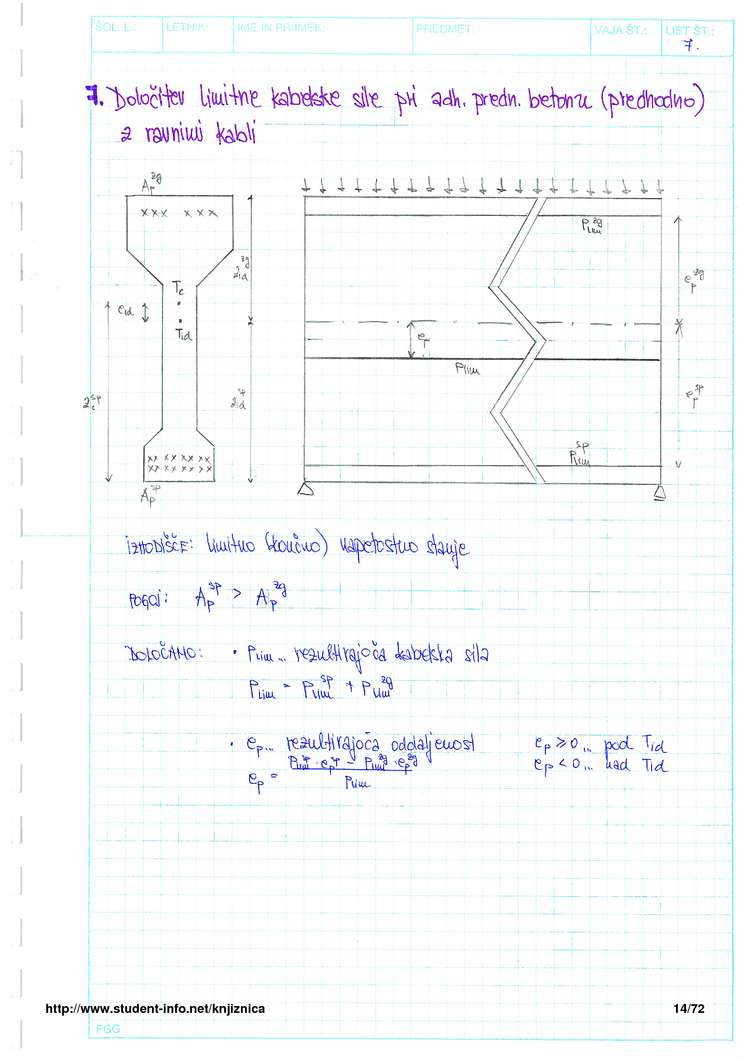 ŠOL. L.: LETNIK: IME IN PRIIMEK: PREDMET: VAJA ŠT.: LIST ŠT.:
7.
7. Določitev limitne kabelske sile pri adh. predn. betonu (predhodno)
z ravnimi kabli
Ap^zg
xxx xxx
Plim^zg
zid^zg
ep^zg
Tc
eid
Tid
ep
Plim
zc^sp
zid^sp
ep^sp
Plim^sp
xx xx xx xx
xx xx xx xx
Ap^sp
IZHODIŠČE: limitno (končno) napetostno stanje
POGOJ: Ap^sp > Ap^zg
DOLOČAMO: • Plim... rezultirajoča kabelska sila
Plim = Plim^sp + Plim^zg
• ep... rezultirajoča oddaljenost ep ≥ 0... pod Tid
ep < 0... nad Tid
ep = (Plim^sp · ep^sp - Plim^zg · ep^zg) / Plim
http://www.student-info.net/knjiznica 14/72
FGG